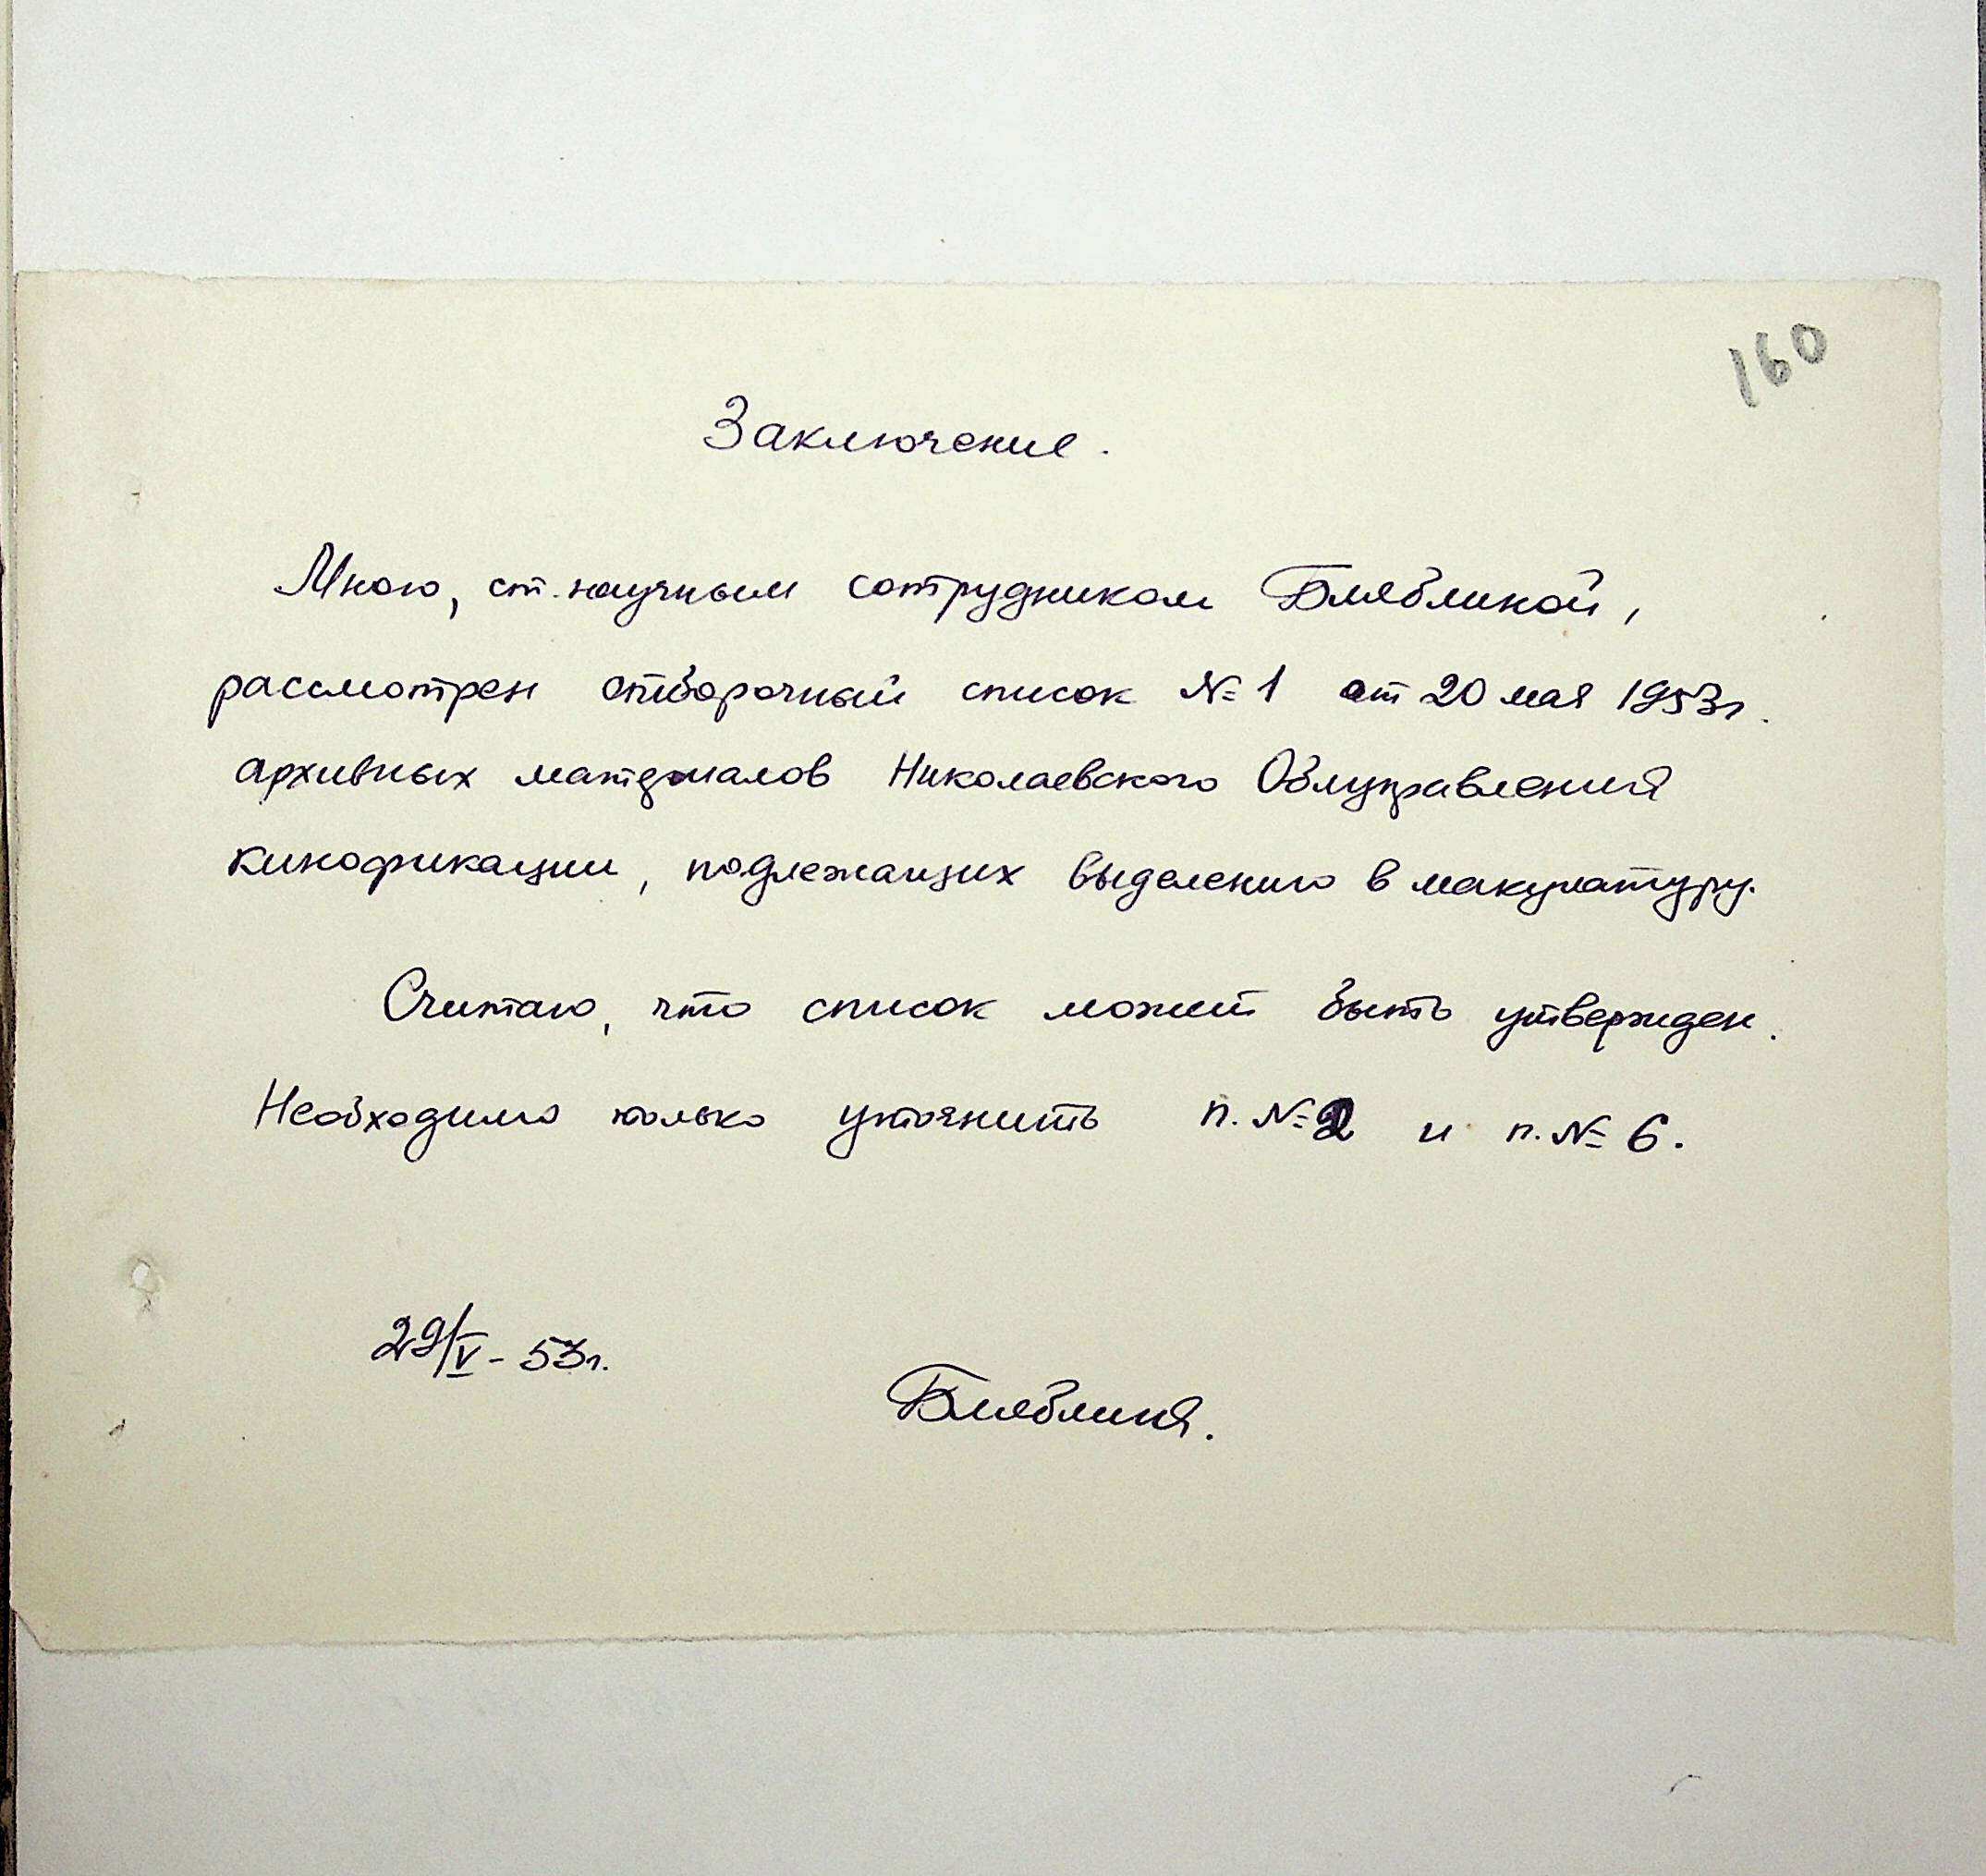 160
Заключение.
Мною, ст. научным сотрудником Бляблиной,
рассмотрен отборочный список № 1 от 20 мая 1953г.
архивных материалов Николаевского Облуправления
кинофикации, подлежащих выделению в макулатуру.
Считаю, что список может быть утвержден.
Необходимо только уточнить п. № 2 и п. № 6.
29/V - 53г.
Бляблина.